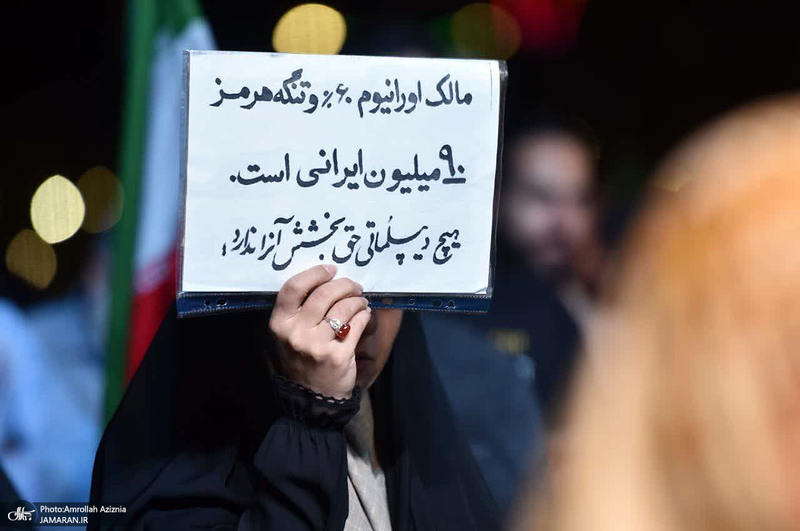 مالک اورانیوم ۶۰٪ و تنگه هرمز
۹۰ میلیون ایرانی است.
هیچ دیپلماتی حق بخشش آنرا ندارد!
Photo:Amrollah Aziznia
JAMARAN.IR